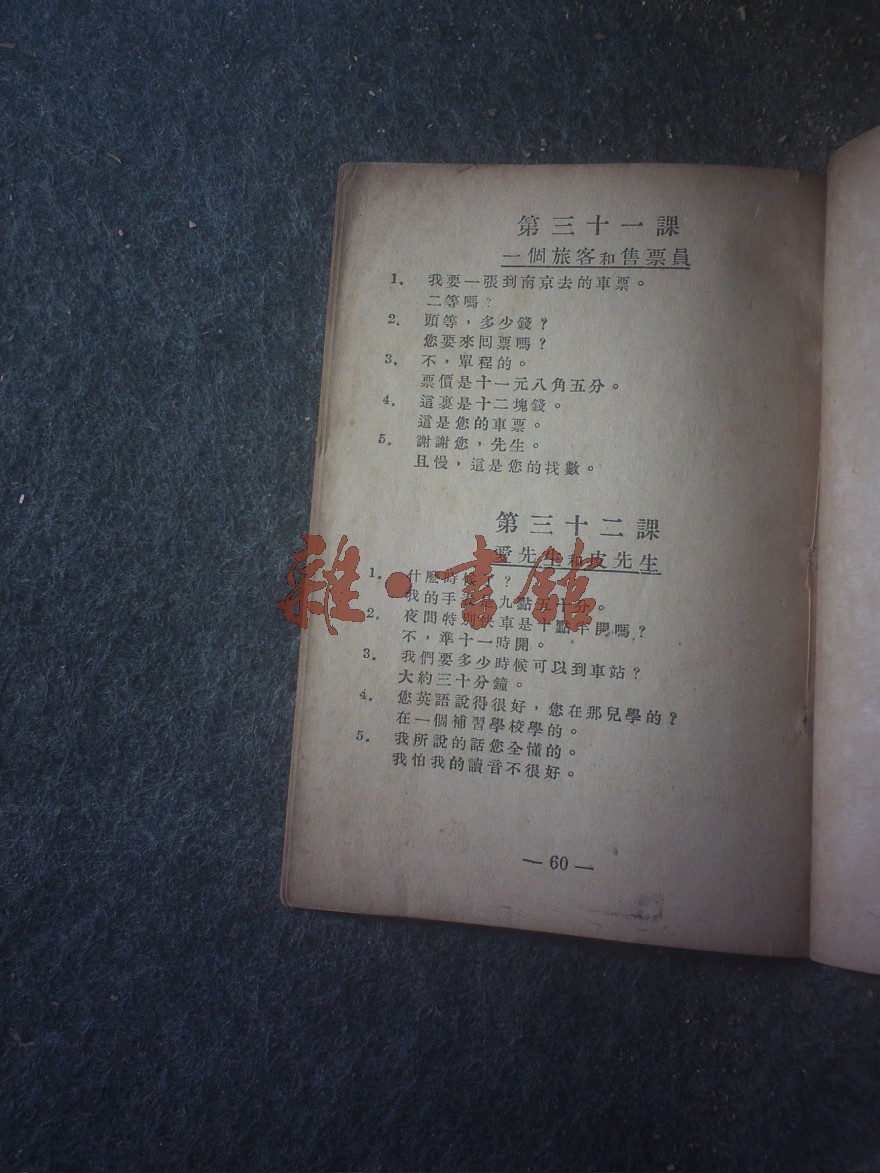 第三十一課
一個旅客和售票員
1. 我要一張到南京去的車票。
二等嗎?
2. 頭等,多少錢?
您要來回票嗎?
3. 不,單程的。
票價是十一元八角五分。
4. 這裏是十二塊錢。
這是您的車票。
5. 謝謝您,先生。
且慢,這是您的找數。
第三十二課
愛先生和皮先生
1. 什麼時候了?
我的手表是九點五十分。
2. 夜間特別快車是十點半開嗎?
不,準十一時開。
3. 我們要多少時候可以到車站?
大約三十分鐘。
4. 您英語說得很好,您在那兒學的?
在一個補習學校學的。
5. 我所說的話您全懂的。
我怕我的讀音不很好。
— 60 —
雜·書館